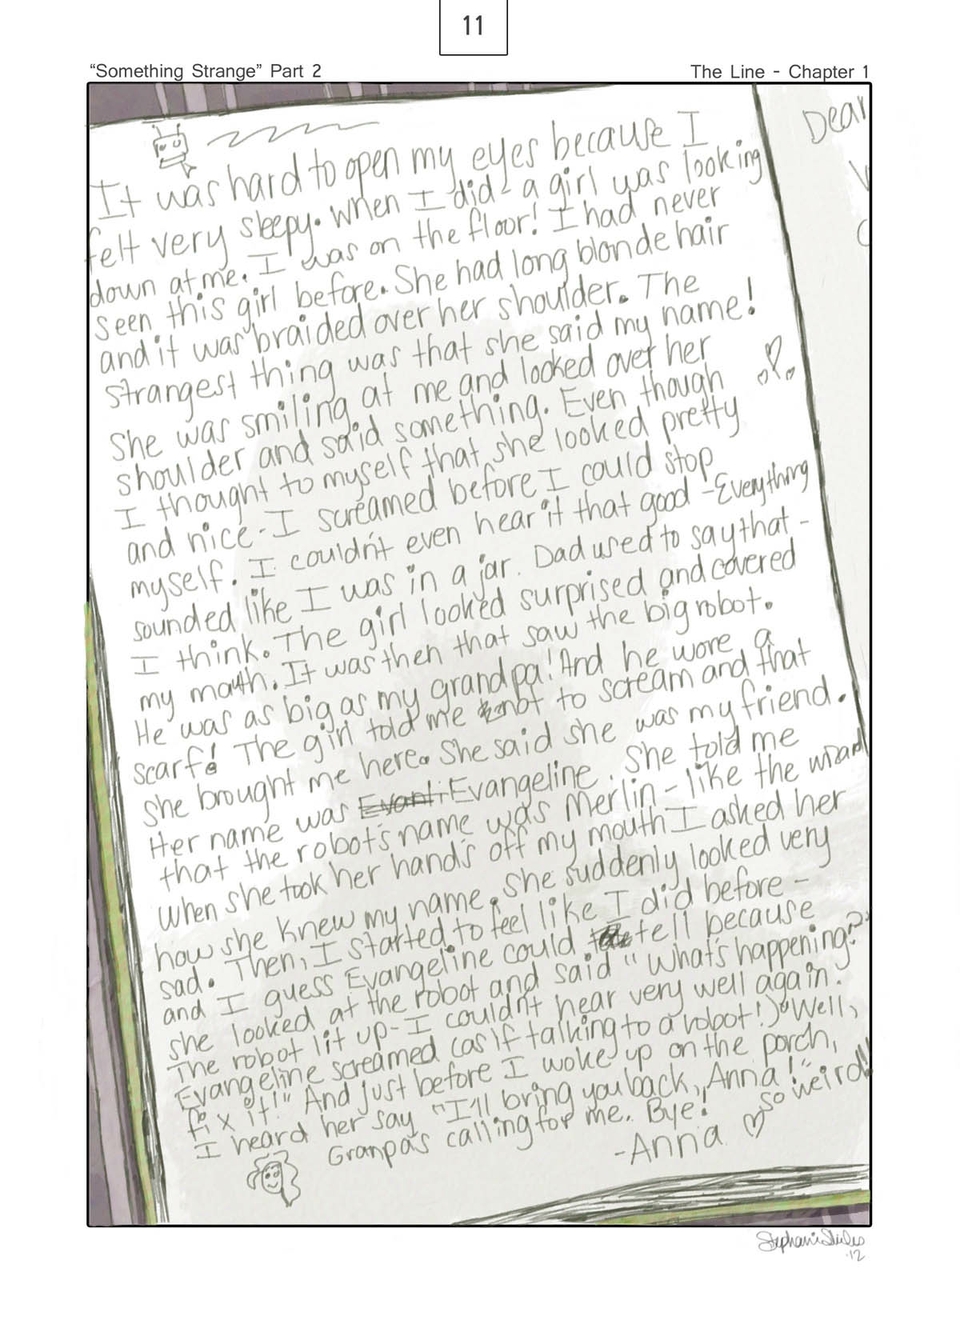 11
“Something Strange” Part 2
The Line - Chapter 1
It was hard to open my eyes because I
felt very sleepy. When I did - a girl was looking
down at me. I was on the floor! I had never
seen this girl before. She had long blonde hair
and it was braided over her shoulder. The
strangest thing was that she said my name!
She was smiling at me and looked over her
shoulder and said something. Even though
I thought to myself that she looked pretty
and nice - I screamed before I could stop
myself. I couldn't even hear it that good - Everything
sounded like I was in a jar. Dad used to say that -
I think. The girl looked surprised and covered
my moath. It was then that saw the big robot.
He was as big as my grandpa! And he wore a
scarf! The girl told me not to scream and that
she brought me here. She said she was my friend.
Her name was Evanti Evangeline. She told me
that the robot's name was Merlin - like the
when she took her hands off my mouth I asked her
how she knew my name. She suddenly looked very
sad. Then, I started to feel like I did before -
and I guess Evangeline could tell because
she looked at the robot and said "What's happening?"
The robot lit up - I couldn't hear very well again.
Evangeline screamed (as if talking to a robot!) "Well,
fix it!" And just before I woke up on the porch,
I heard her say "I'll bring you back, Anna!" so weird!!
Granpa's calling for me. Bye!
-Anna
Dear
'12